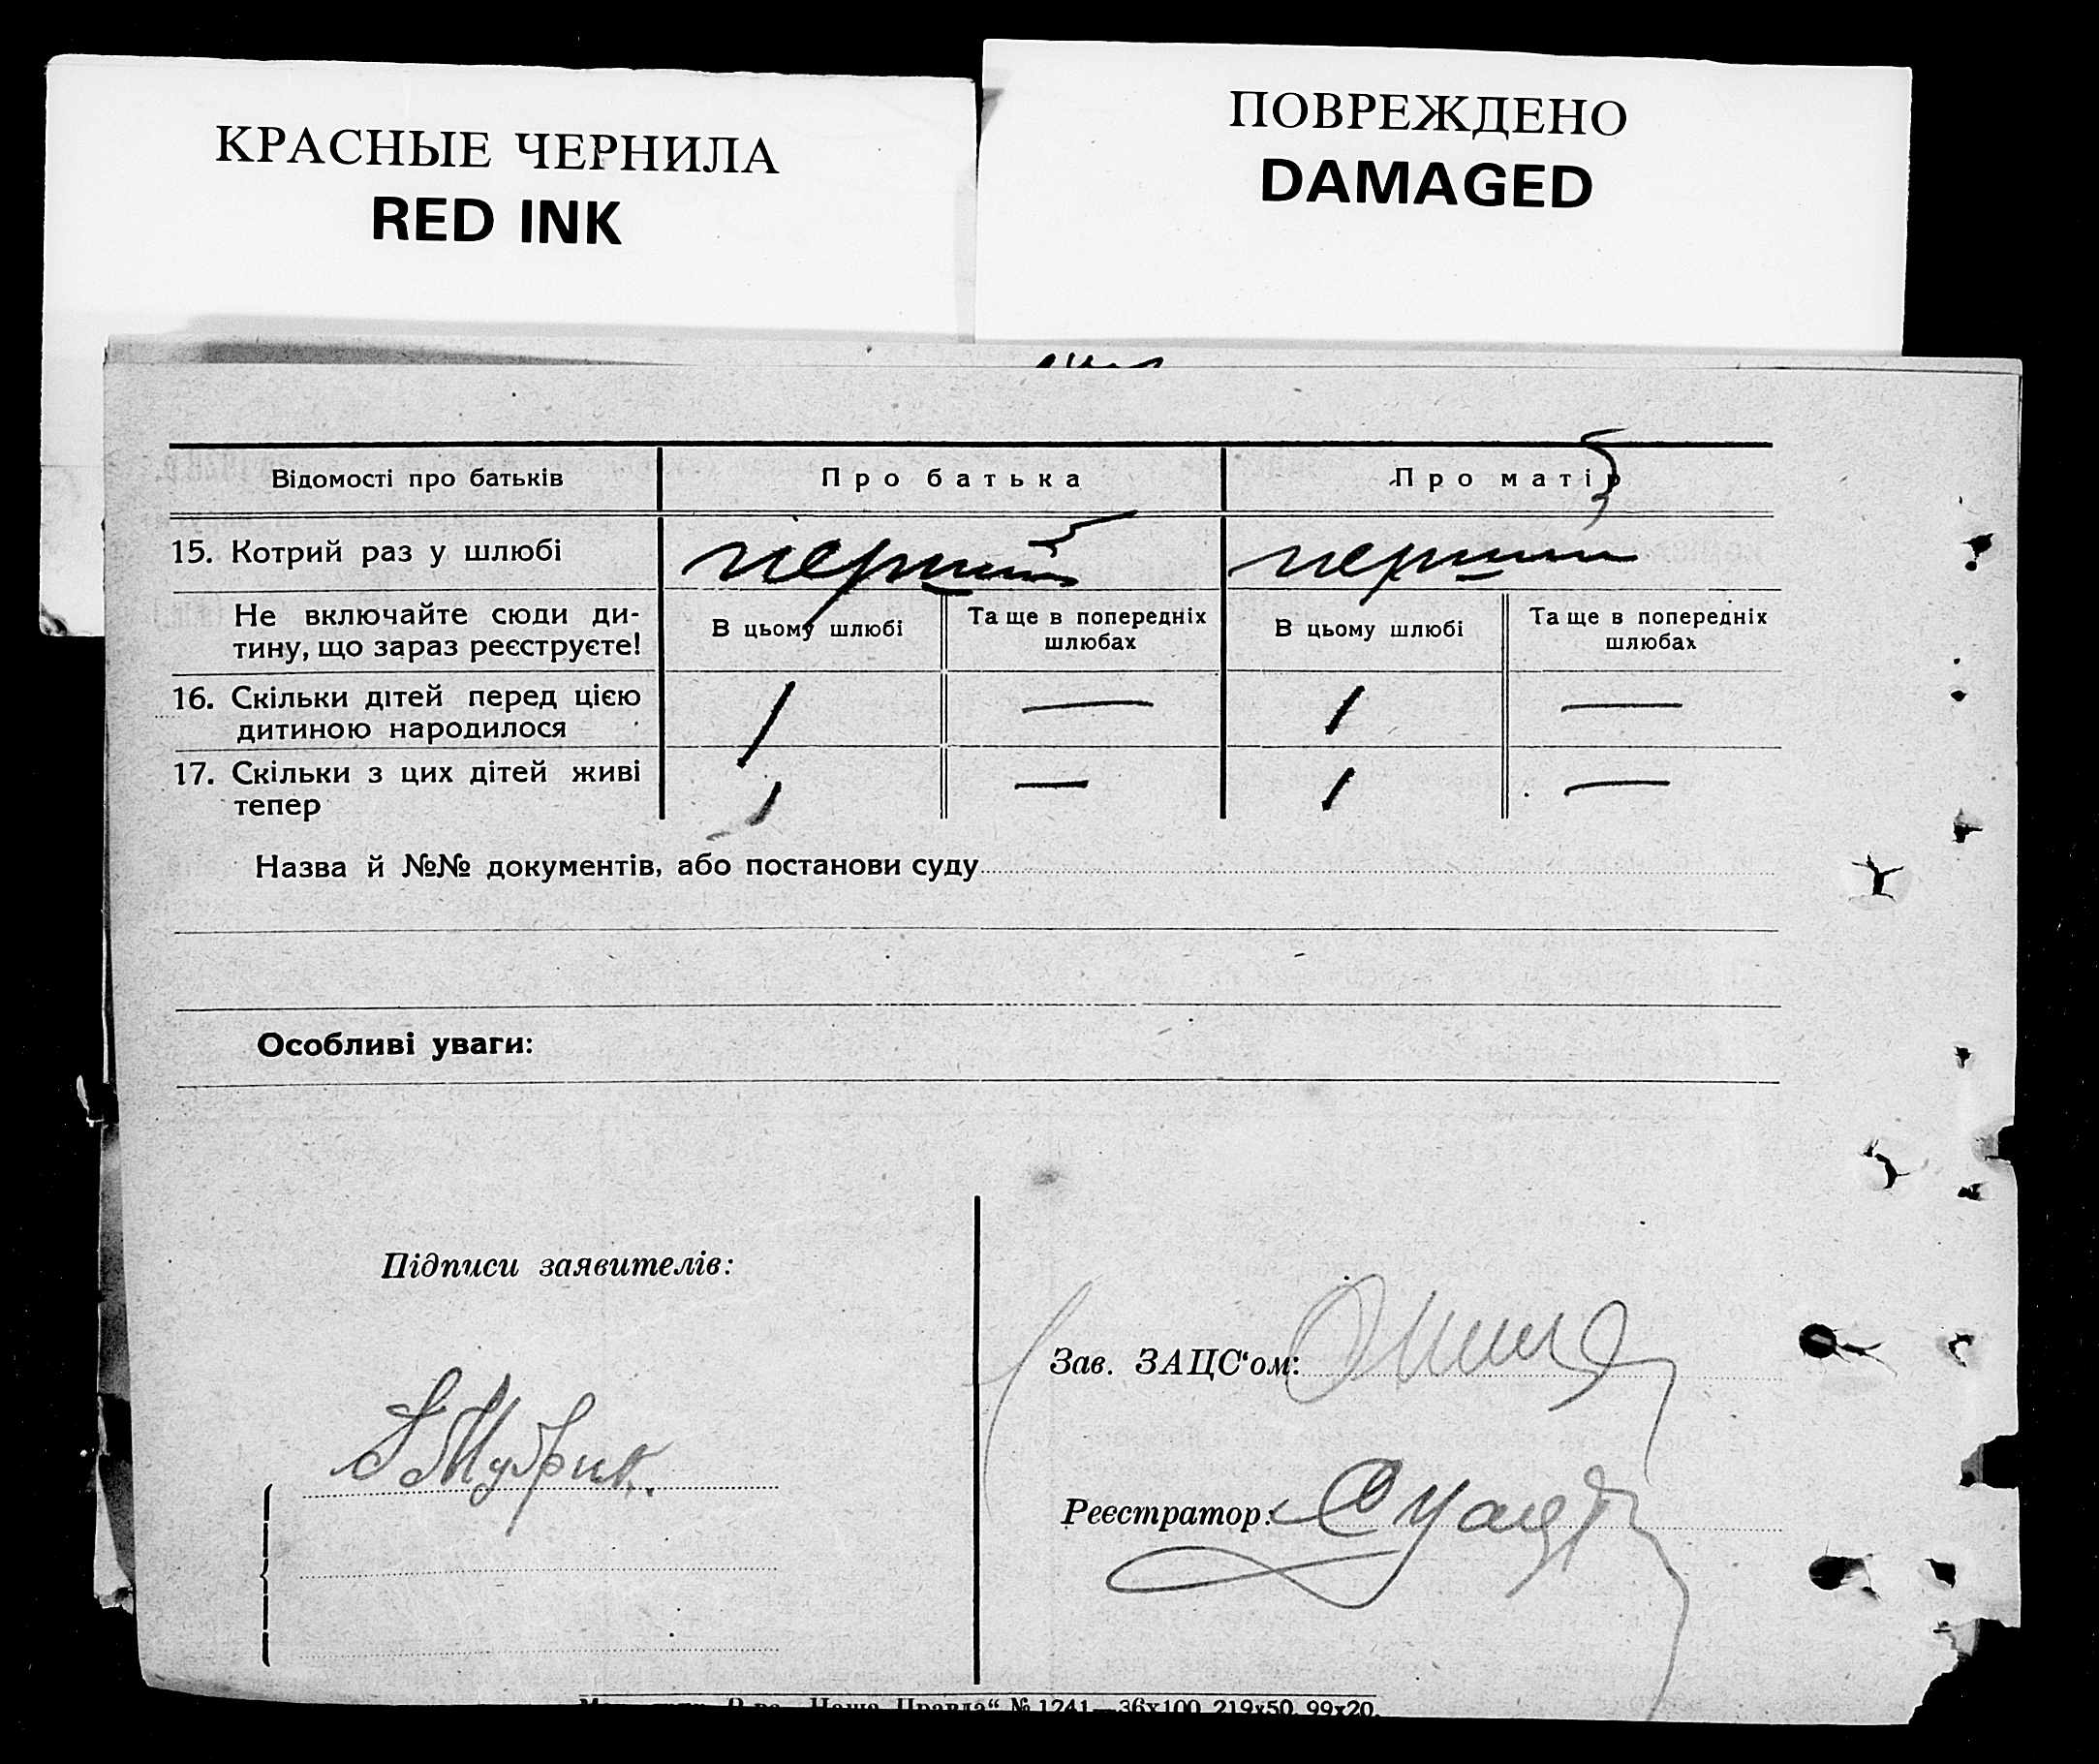 КРАСНЫЕ ЧЕРНИЛА
RED INK
ПОВРЕЖДЕНО
DAMAGED
Відомості про батьків
Про батька
Про матір
15. Котрий раз у шлюбі
перший
перший
Не включайте сюди ди-
тину, що зараз реєструєте!
В цьому шлюбі
Та ще в попередніх
шлюбах
В цьому шлюбі
Та ще в попередніх
шлюбах
16. Скільки дітей перед цією
дитиною народилося
1 — 1 —
17. Скільки з цих дітей живі
тепер
1 — 1 —
Назва й №№ документів, або постанови суду
Особливі уваги:
Підписи заявителів:
Зав. ЗАЦС‘ом:
Реєстратор:
„Наша Правда“ № 1241—36х100 219х50 99х20.